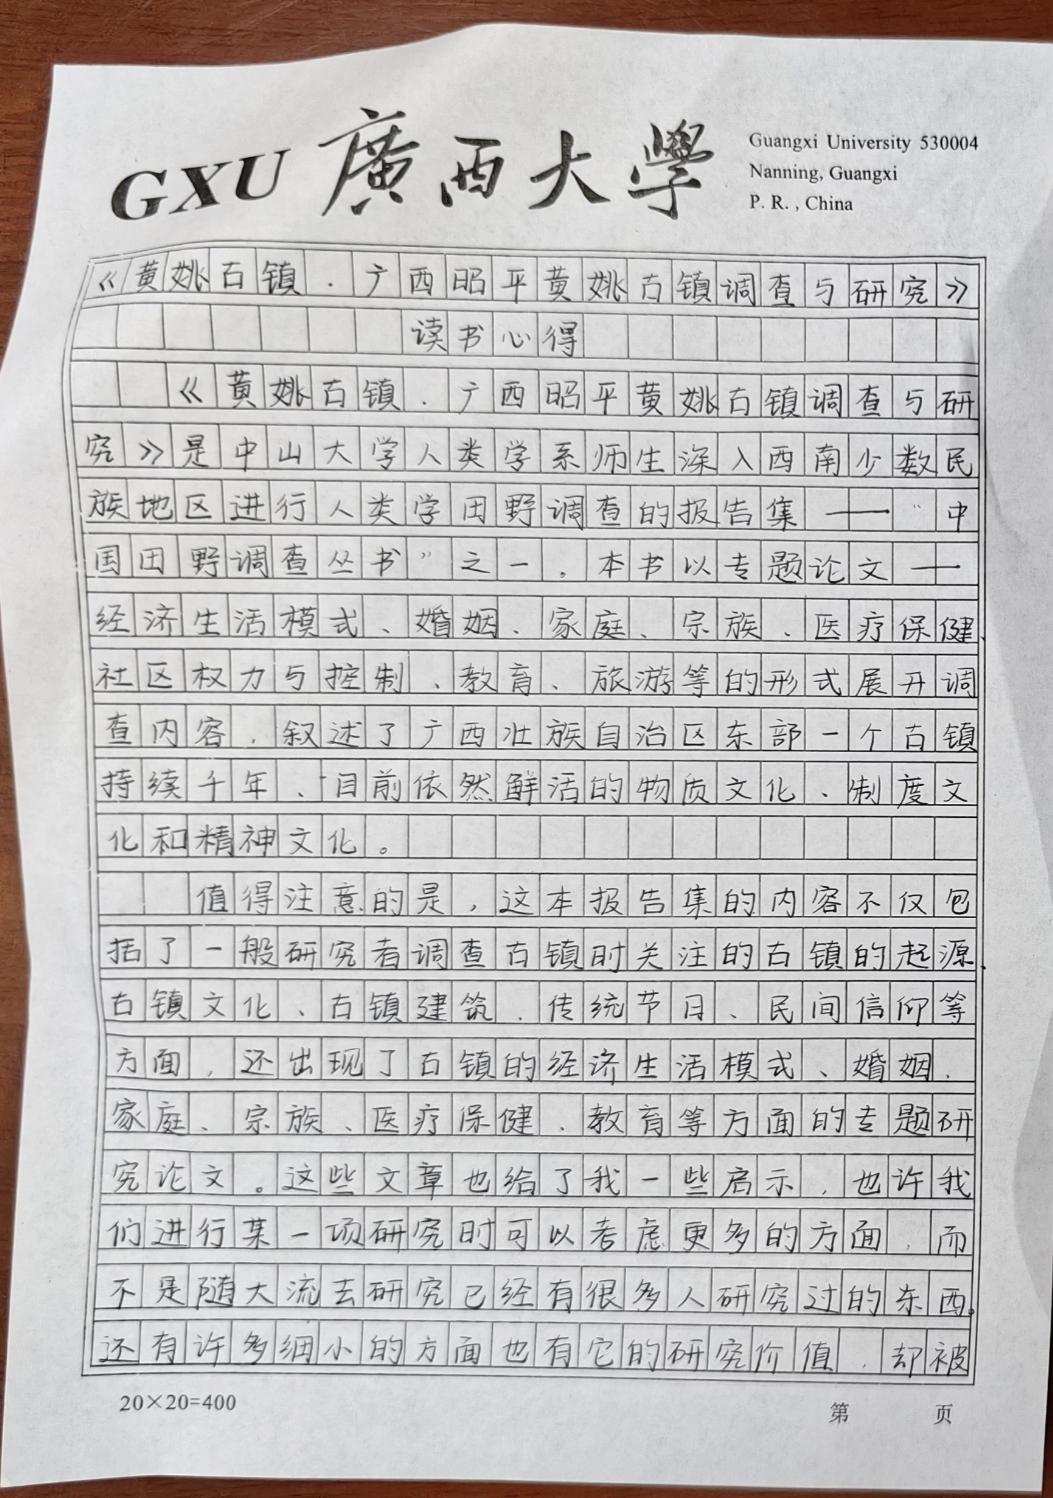 GXU 廣西大學
Guangxi University 530004
Nanning, Guangxi
P. R. , China
《黄姚古镇·广西昭平黄姚古镇调查与研究》
读书心得
《黄姚古镇·广西昭平黄姚古镇调查与研
究》是中山大学人类学系师生深入西南少数民
族地区进行人类学田野调查的报告集——“中
国田野调查丛书”之一。本书以专题论文——
经济生活模式、婚姻、家庭、宗族、医疗保健、
社区权力与控制、教育、旅游等的形式展开调
查内容，叙述了广西壮族自治区东部一个古镇
持续千年、目前依然鲜活的物质文化、制度文
化和精神文化。
值得注意的是，这本报告集的内容不仅包
括了一般研究者调查古镇时关注的古镇的起源、
古镇文化、古镇建筑、传统节日、民间信仰等
方面，还出现了古镇的经济生活模式、婚姻、
家庭、宗族、医疗保健、教育等方面的专题研
究论文。这些文章也给了我一些启示，也许我
们进行某一项研究时可以考虑更多的方面，而
不是随大流去研究已经有很多人研究过的东西。
还有许多细小的方面也有它的研究价值，却被
20×20=400
第 页